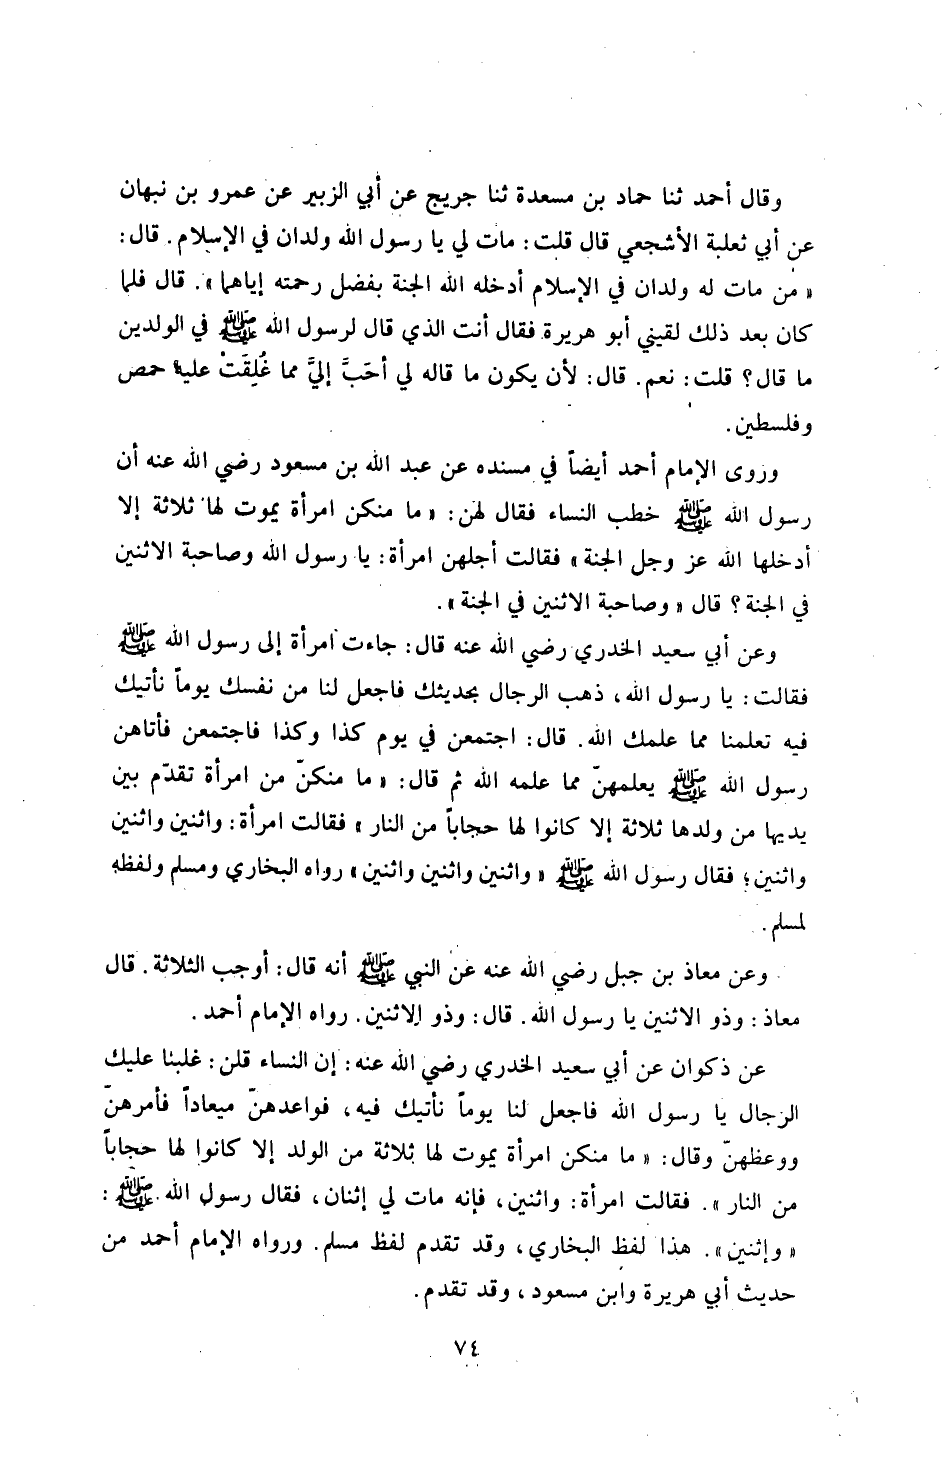 وقال أحمد ثنا حماد بن مسعدة ثنا جريج عن أبي الزبير عن عمرو بن نبهان
عن أبي ثعلبة الأشجعي قال قلت: مات لي يا رسول الله ولدان في الإسلام. قال:
« من مات له ولدان في الإسلام أدخله الله الجنة بفضل رحمته إياهما ». قال فلما
كان بعد ذلك لقيني أبو هريرة فقال أنت الذي قال لرسول الله ﷺ في الولدين
ما قال؟ قلت: نعم. قال: لأن يكون ما قاله لي أحَبَّ إليَّ مما غُلِقَتْ عليه حمص
وفلسطين.
وروى الإمام أحمد أيضاً في مسنده عن عبد الله بن مسعود رضي الله عنه أن
رسول الله ﷺ خطب النساء فقال لهن: « ما منكن امرأة يموت لها ثلاثة إلا
أدخلها الله عز وجل الجنة » فقالت أجلهن امرأة: يا رسول الله وصاحبة الاثنين
في الجنة؟ قال « وصاحبة الاثنين في الجنة ».
وعن أبي سعيد الخدري رضي الله عنه قال: جاءت امرأة إلى رسول الله ﷺ
فقالت: يا رسول الله، ذهب الرجال بحديثك فاجعل لنا من نفسك يوماً نأتيك
فيه تعلمنا مما علمك الله. قال: اجتمعن في يوم كذا وكذا فاجتمعن فأتاهن
رسول الله ﷺ يعلمهنّ مما علمه الله ثم قال: « ما منكنّ من امرأة تقدّم بين
يديها من ولدها ثلاثة إلا كانوا لها حجاباً من النار » فقالت امرأة: واثنين واثنين
واثنين؛ فقال رسول الله ﷺ « واثنين واثنين واثنين » رواه البخاري ومسلم ولفظه
لمسلم.
وعن معاذ بن جبل رضي الله عنه عن النبي ﷺ أنه قال: أوجب الثلاثة. قال
معاذ: وذو الاثنين يا رسول الله. قال: وذو الاثنين. رواه الإمام أحمد.
عن ذكوان عن أبي سعيد الخدري رضي الله عنه: إن النساء قلن: غلبنا عليك
الرجال يا رسول الله فاجعل لنا يوماً نأتيك فيه، فواعدهنّ ميعاداً فأمرهنّ
ووعظهنّ وقال: « ما منكن امرأة يموت لها ثلاثة من الولد إلا كانوا لها حجاباً
من النار ». فقالت امرأة: واثنين، فإنه مات لي إثنان، فقال رسول الله ﷺ:
« وإثنين ». هذا لفظ البخاري، وقد تقدم لفظ مسلم. ورواه الإمام أحمد من
حديث أبي هريرة وابن مسعود، وقد تقدم.
٧٤